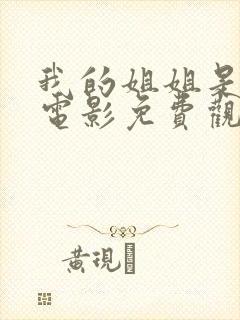 我的姐姐呆
電影免費觀
黃現